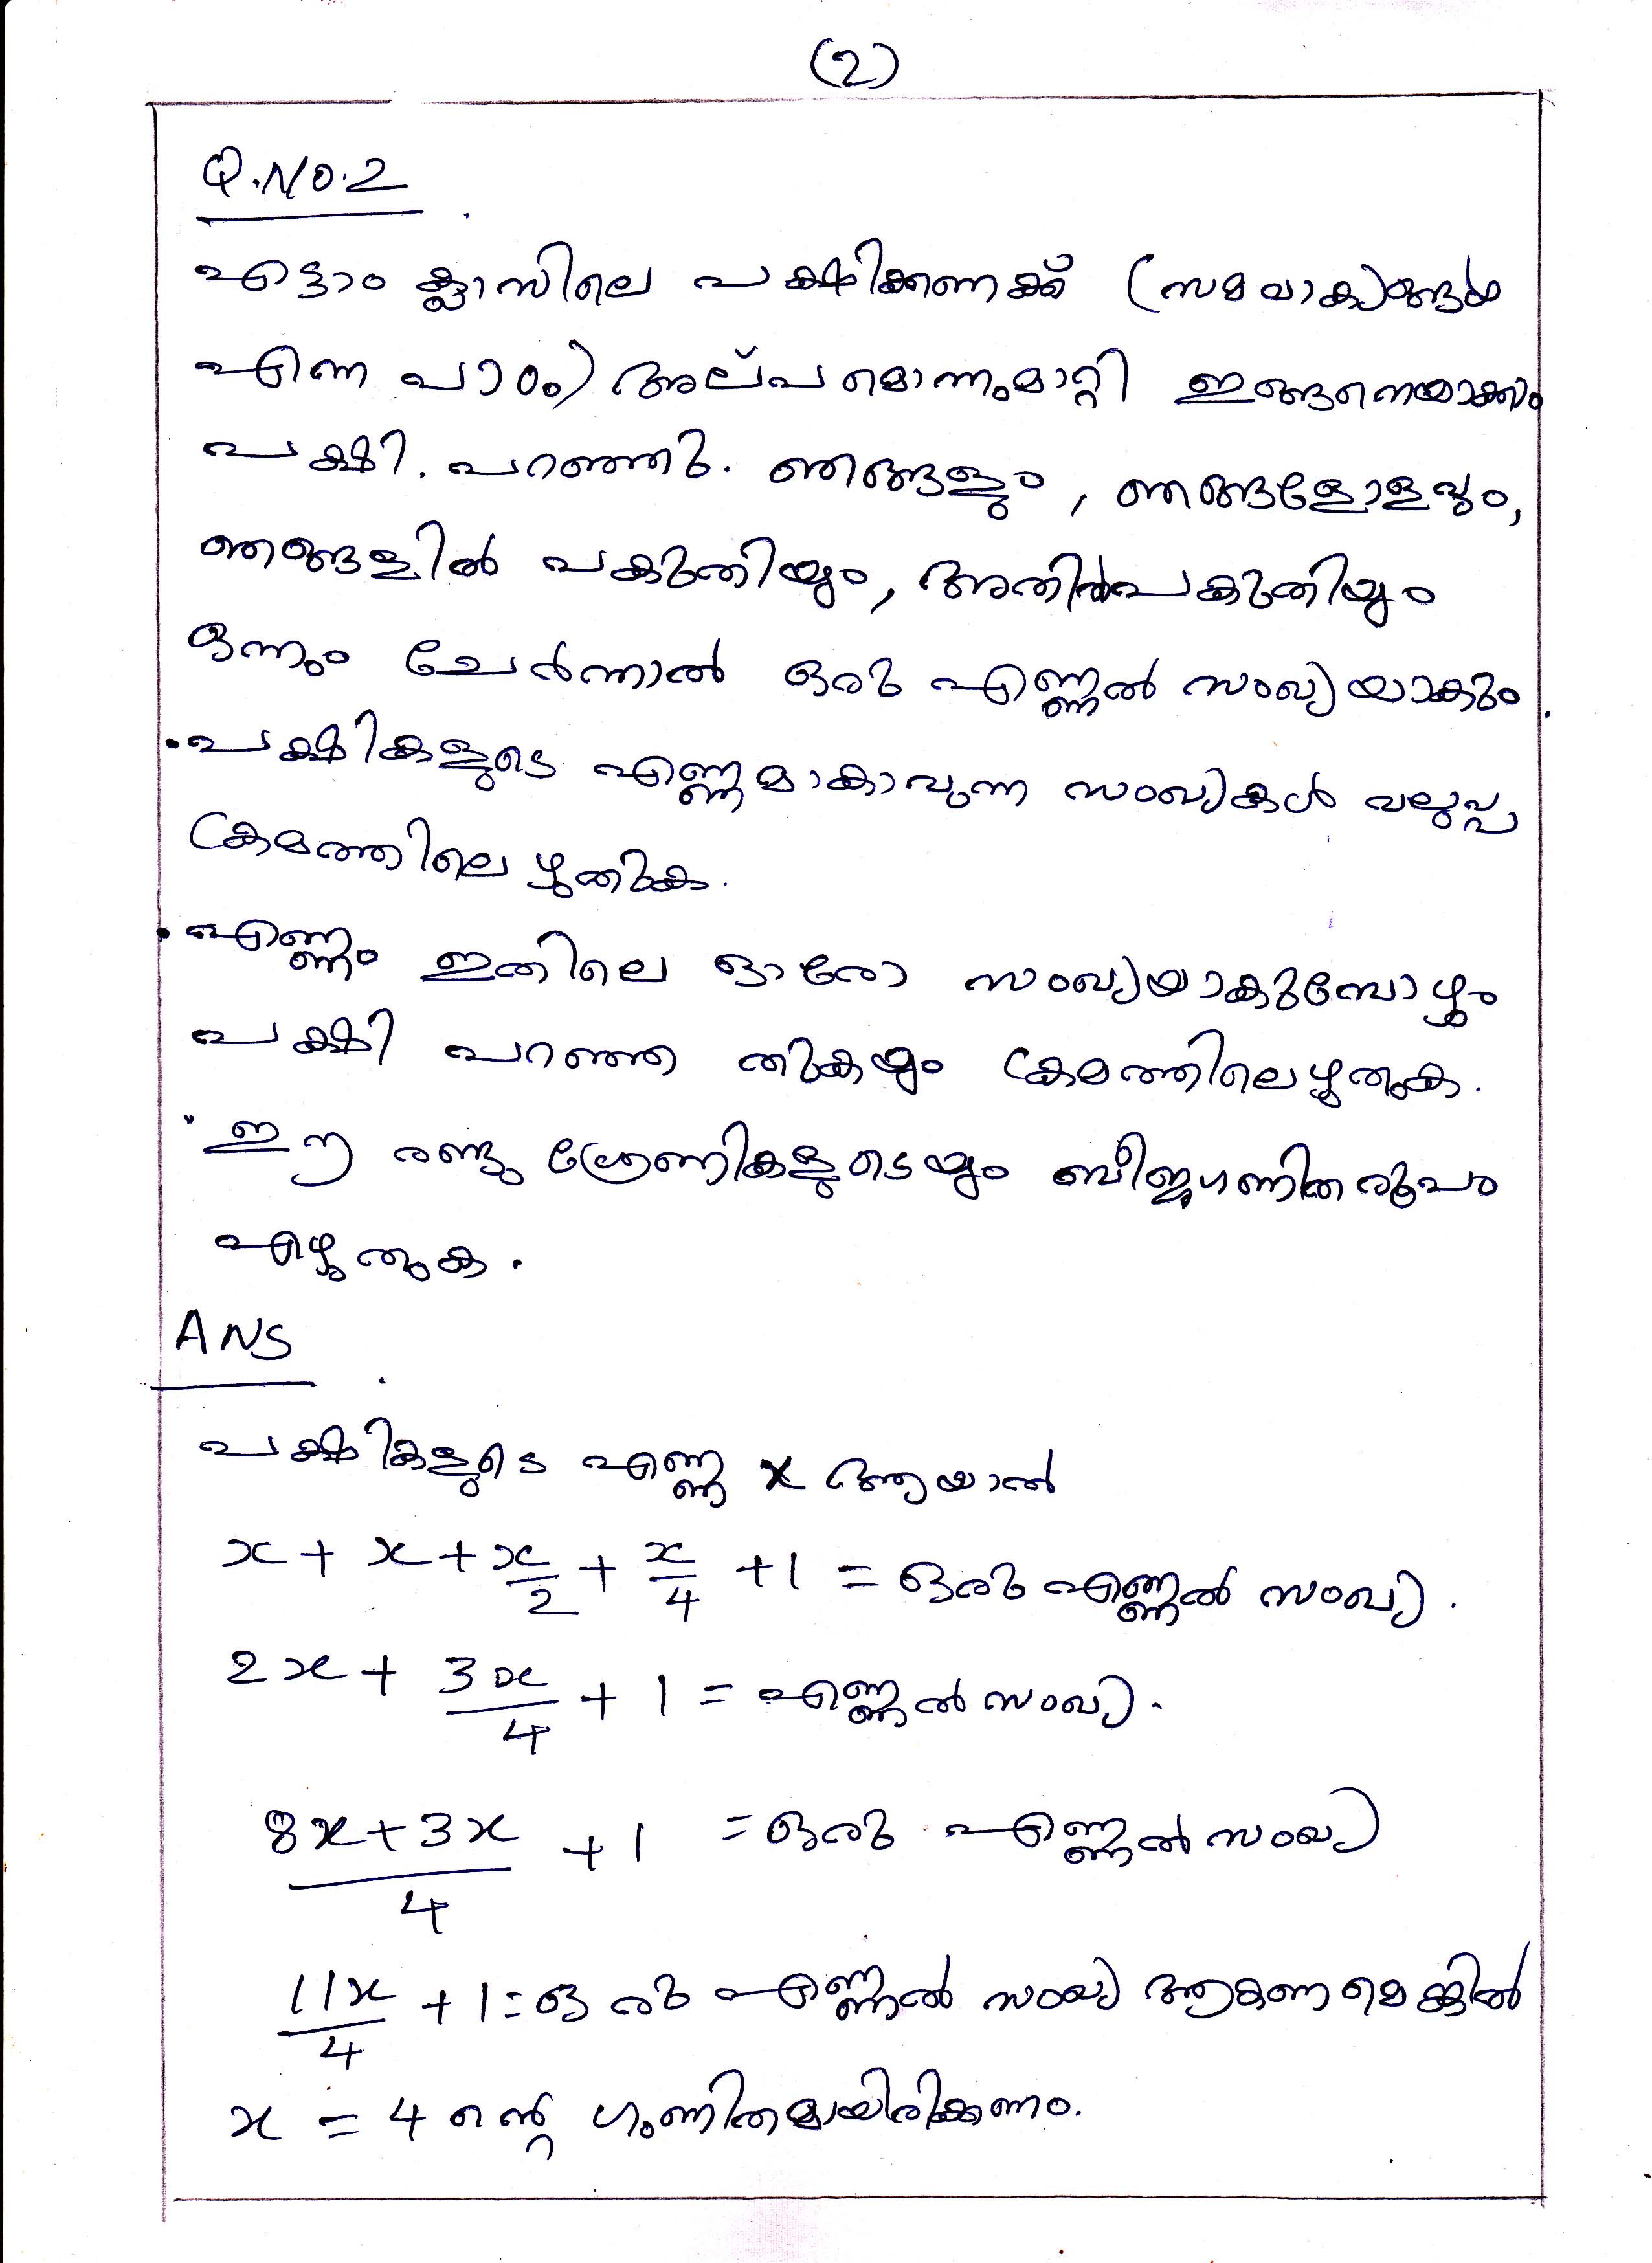 (2)
Q.No.2
എട്ടാം ക്ലാസിലെ പക്ഷിക്കണക്ക് (സമവാക്യങ്ങൾ
എന്ന പാഠം) അല്പമൊന്നുമാറ്റി ഇങ്ങനെയാക്കാം
പക്ഷി. പറഞ്ഞു. ഞങ്ങളും, ഞങ്ങളോളവും,
ഞങ്ങളിൽ പകുതിയും, അതിൻപകുതിയും
ഒന്നും ചേർന്നാൽ ഒരു എണ്ണൽ സംഖ്യയാകും.
• പക്ഷികളുടെ എണ്ണമാകാവുന്ന സംഖ്യകൾ വലുപ്പ
ക്രമത്തിലെഴുതുക.
• എണ്ണം ഇതിലെ ഓരോ സംഖ്യയാകുമ്പോഴും
പക്ഷി പറഞ്ഞ തുകയും ക്രമത്തിലെഴുതുക.
• ഈ രണ്ടു ശ്രേണികളുടെയും ബീജഗണിതരൂപം
എഴുതുക.
ANS
പക്ഷികളുടെ എണ്ണ x ആയാൽ
x + x + x/2 + x/4 + 1 = ഒരു എണ്ണൽ സംഖ്യ.
2x + 3x/4 + 1 = എണ്ണൽ സംഖ്യ.
8x+3x/4 + 1 = ഒരു എണ്ണൽ സംഖ്യ
11x/4 + 1 = ഒരു എണ്ണൽ സംഖ്യ ആകണമെങ്കിൽ
x = 4 ന്റെ ഗുണിതമായിരിക്കണം.